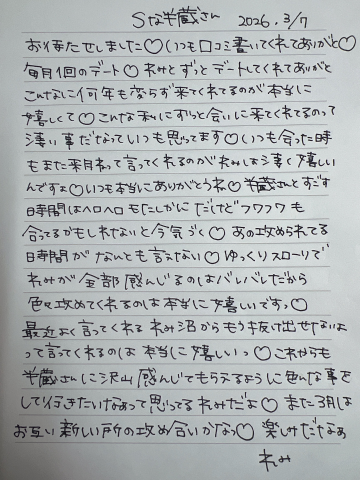 Sな半蔵さん 2026.3/7
お待たせしました♡いつも口コミ書いてくれてありがと♡
毎月1回のデート♡れみとずっとデートしてくれてありがと
こんなに何年も変らず来てくれるのが本当に
嬉しくて♡こんな私にずっと会いに来てくれるのって
凄い事だなっていつも思ってます♡いつも会った時
もまた来月ねって言ってくれるのがれみは凄く嬉しい
んですよ♡いつも本当にありがとうね♡半蔵さんとすごす
時間はヘロヘロもたしかにだけどフワフワも
合ってるかもしれないと今気づく♡あの攻められてる
時間がなんとも言えない♡ゆっくりスローリで
れみが全部感んじるのはバレバレだから
色々攻めてくれるのは本当に嬉しいですっ♡
最近よく言ってくれるれみ沼からもう抜け出せないよ
って言ってくれるのは本当に嬉しいっ♡これからも
半蔵さんに沢山感んじてもらえるように色んな事を
して行きたいなぁって思ってるれみだよ♡また3月は
お互い新しい所の攻め合いかなっ♡楽しみだなぁ
れみ